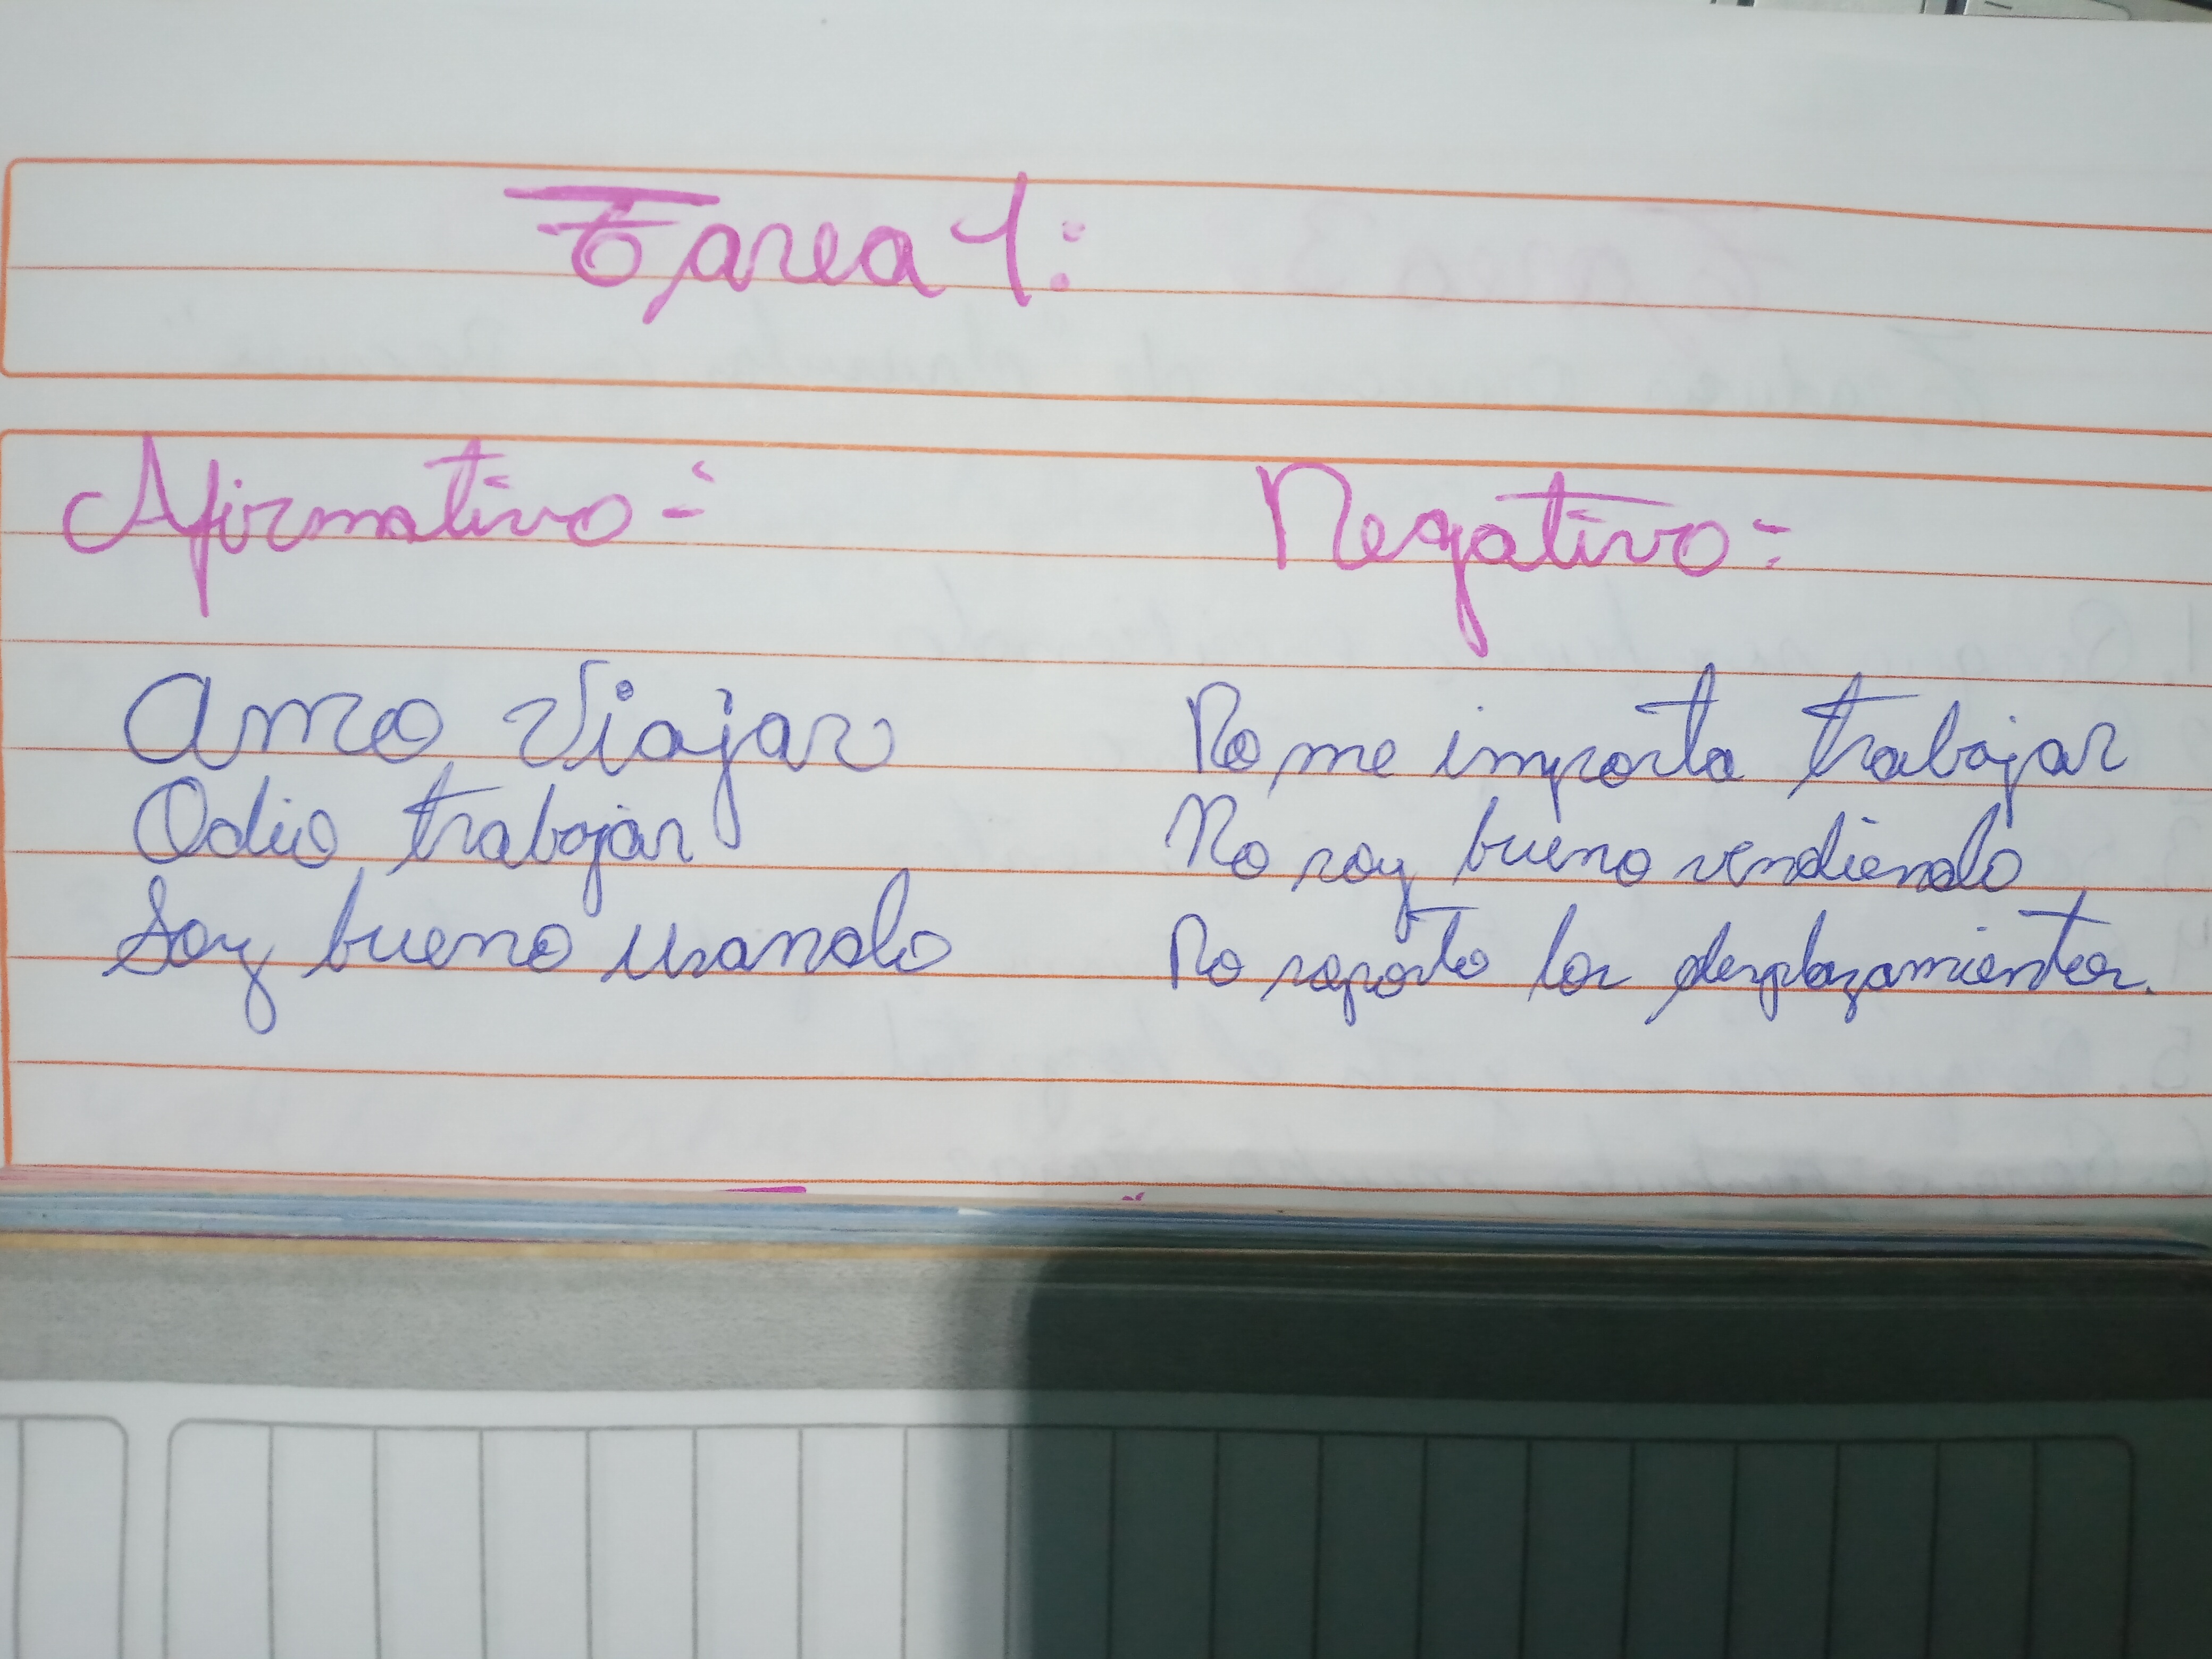 Tarea 1:
Afirmativo: Negativo:
Amo viajar No me importa trabajar
Odio trabajar No soy bueno vendiendo
Soy bueno usando No soporto los desplazamientos.